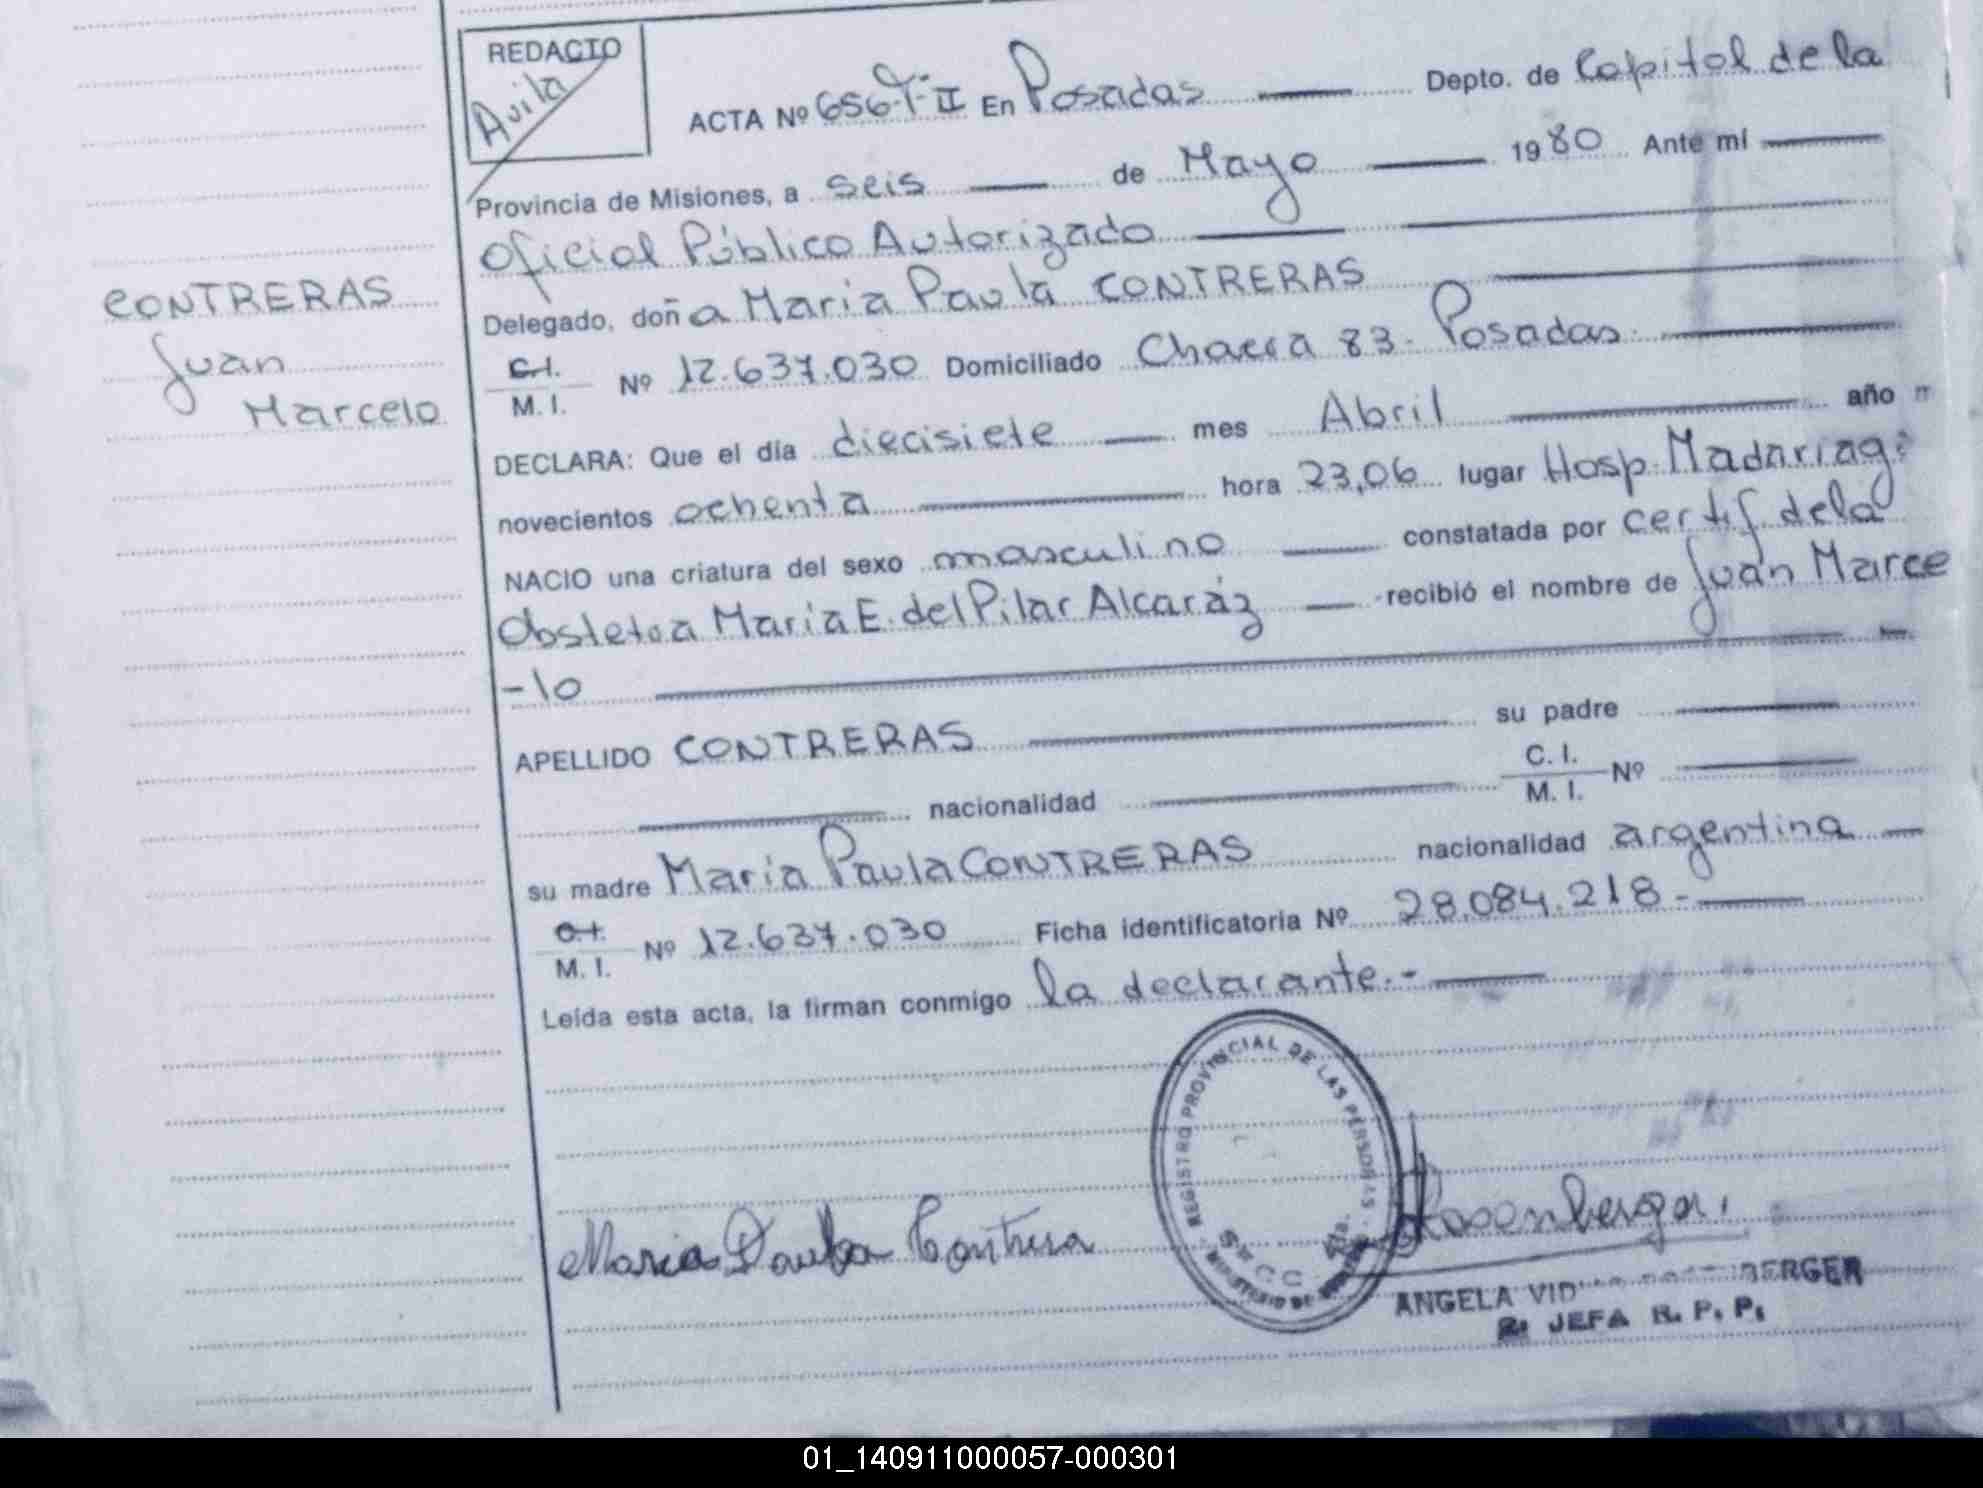 REDACTO
Avila
ACTA Nº 656-T-II En Posadas Depto. de Capital de la
Provincia de Misiones, a seis de Mayo 1980 Ante mí
Oficial Público Autorizado
CONTRERAS
Juan
Marcelo
Delegado, doña Maria Paula CONTRERAS
C.I. M.I. Nº 12.637.030 Domiciliado Chacra 83- Posadas
DECLARA: Que el día diecisiete mes Abril año m
novecientos ochenta hora 23,06 lugar Hosp. Madariaga
NACIO una criatura del sexo masculino constatada por certif. de la
Obstetra Maria E. del Pilar Alcaráz recibió el nombre de Juan Marce
-lo
APELLIDO CONTRERAS su padre
nacionalidad C. I. M. I. Nº
su madre Maria Paula CONTRERAS nacionalidad argentina
C.I. M. I. Nº 12.637.030 Ficha identificatoria Nº 28.084.218-
Leída esta acta, la firman conmigo la declarante.-
REGISTRO PROVINCIAL DE LAS PERSONAS
SECC. 4ta.
Maria Paula Contrera
Rosenberger
ANGELA BERGER
JEFA R. P. P.
01_140911000057-000301